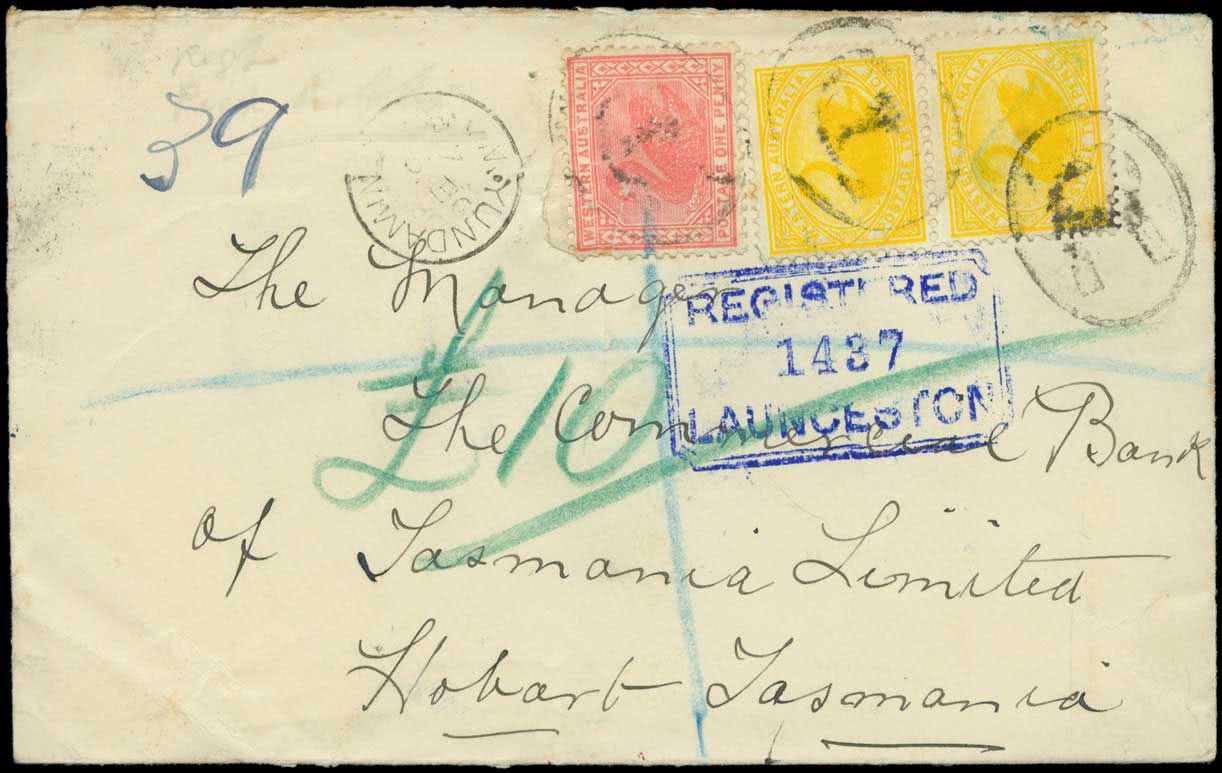 39
YUNDAMIN
WESTERN AUSTRALIA
POSTAGE ONE PENNY
WESTERN AUSTRALIA
WESTERN AUSTRALIA
REGISTERED
1437
LAUNCESTON
The Manager
£10
The Commercial Bank
of Tasmania Limited
Hobart Tasmania